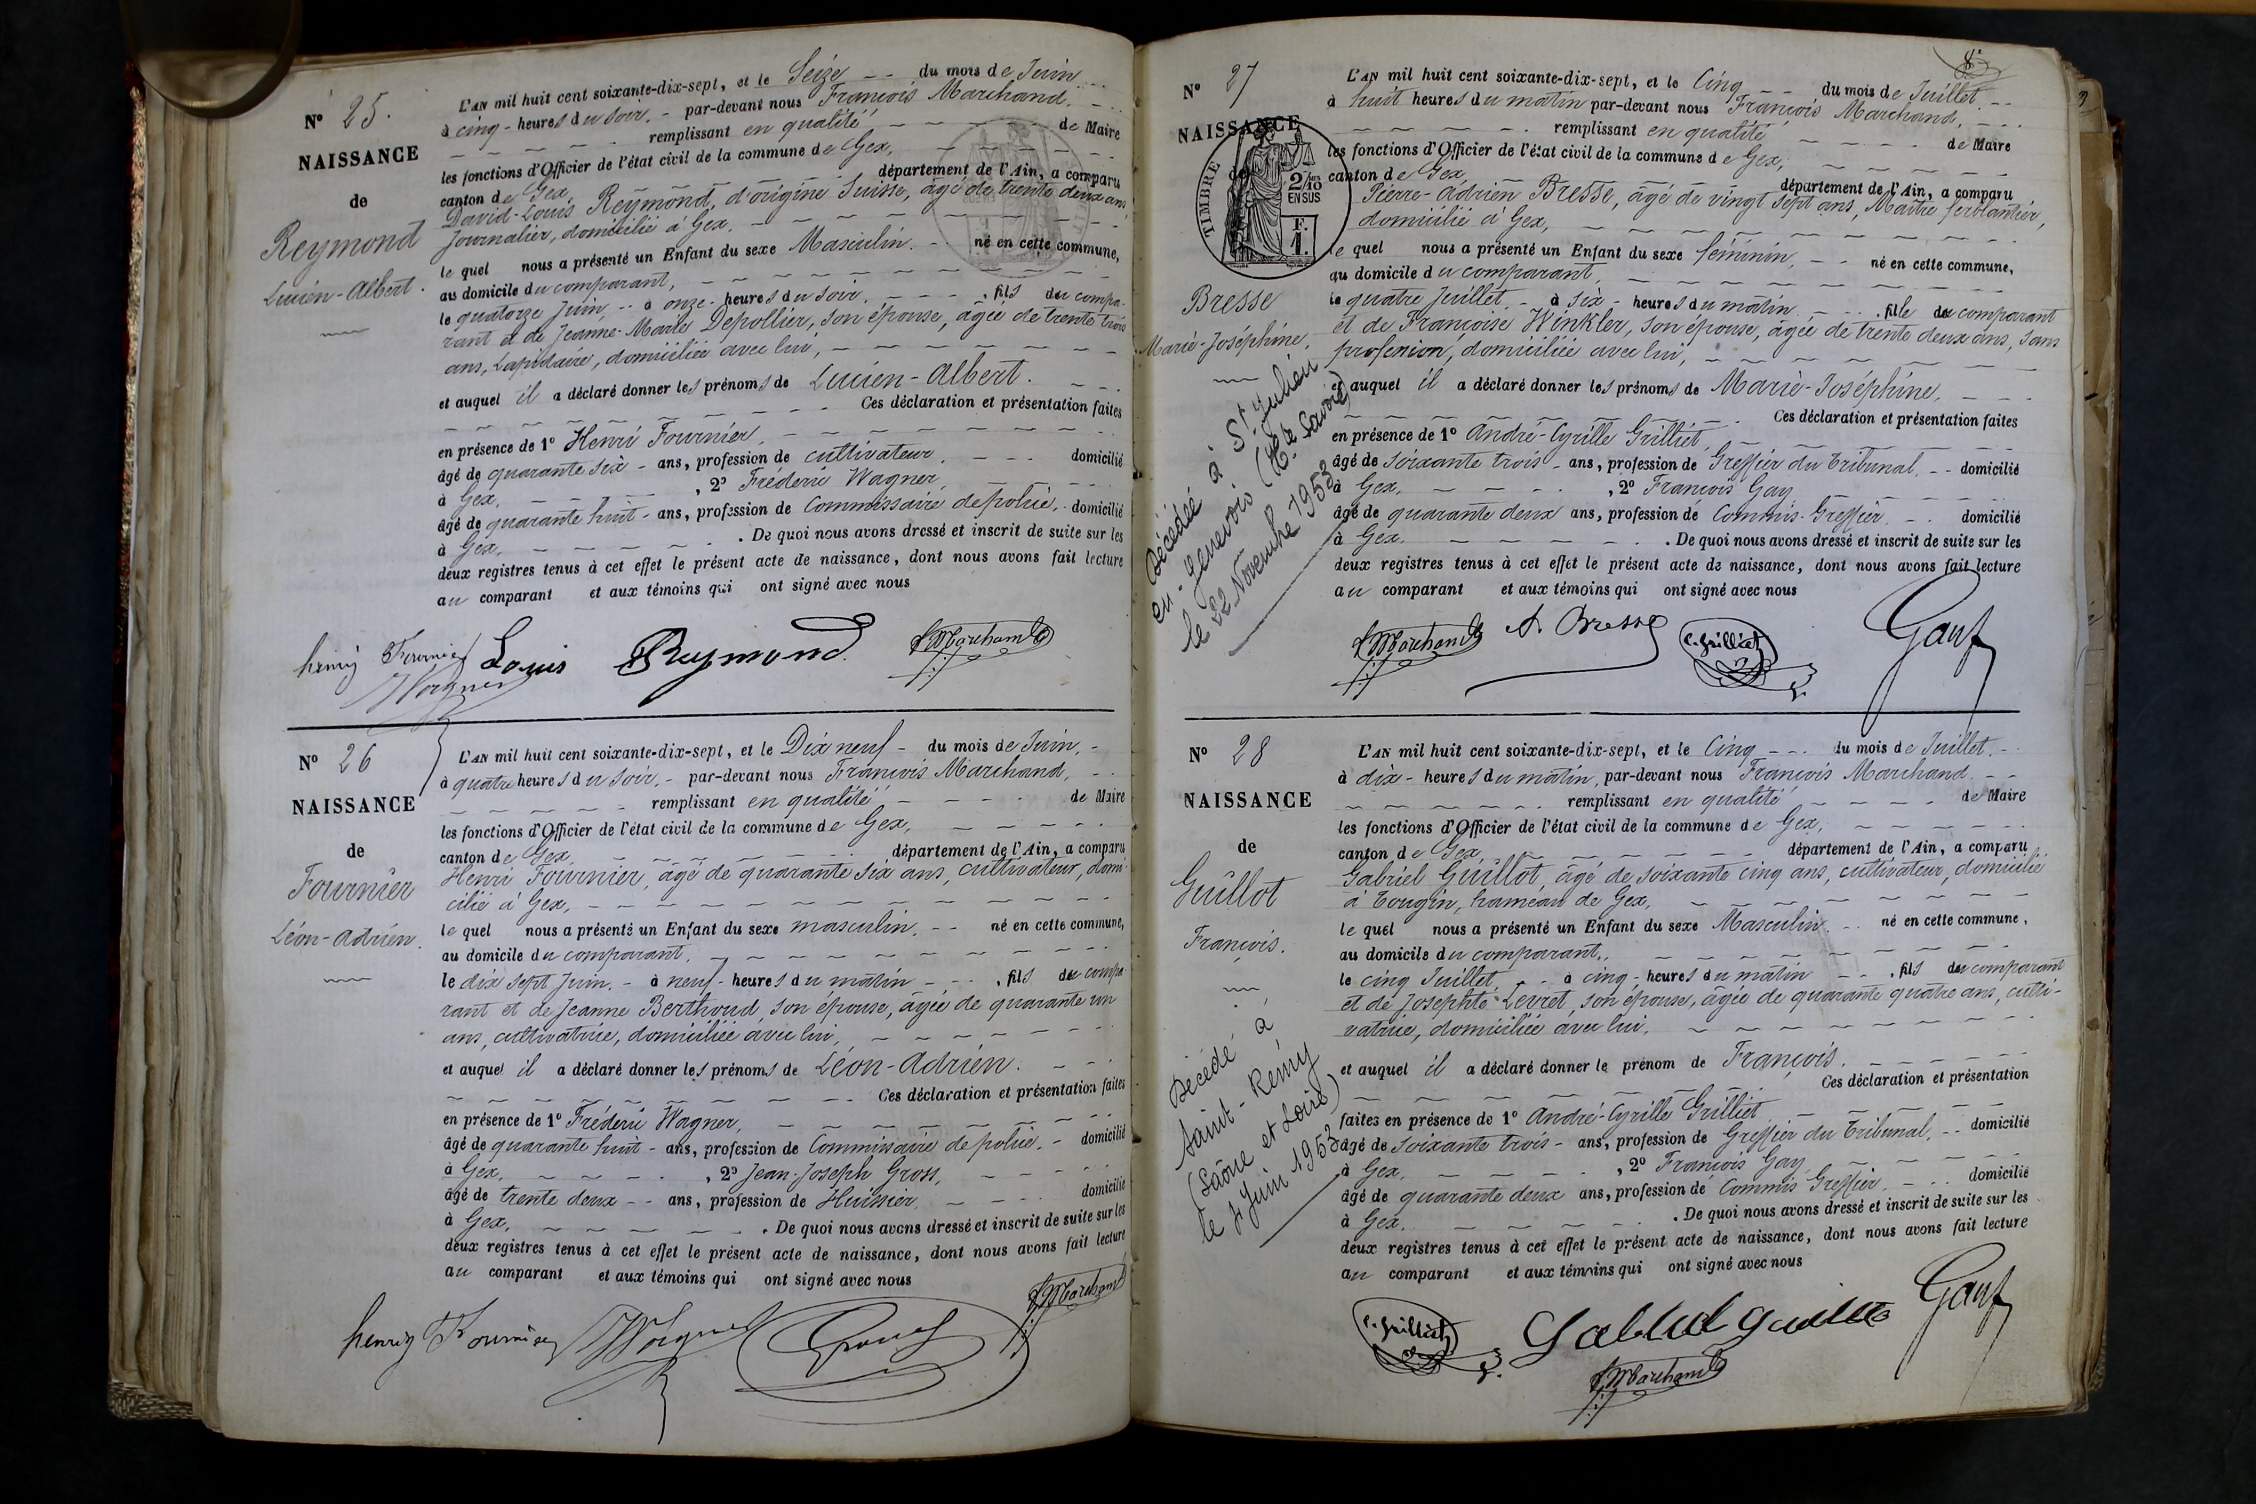 Nº 25.
NAISSANCE
de
Reymond
Lucien-Albert.
L'AN mil huit cent soixante-dix-sept, et le Seize du mois de Juin
à cinq heures du soir, par-devant nous François Marchand,
remplissant en qualité de Maire
les fonctions d'Officier de l'état civil de la commune de Gex,
canton de Gex, département de l'Ain, a comparu
David-Louis Reymond, d'origine Suisse, âgé de trente deux ans,
Journalier, domicilié à Gex,
le quel nous a présenté un Enfant du sexe Masculin. né en cette commune,
au domicile du comparant,
le quatorze Juin, à onze heures du soir, fils du compa-
rant et de Jeanne-Marie Depollier, son épouse, âgée de trente trois
ans, Lapidaire, domiciliée avec lui,
et auquel il a déclaré donner les prénoms de Lucien-Albert.
Ces déclaration et présentation faites
en présence de 1º Henri Fournier,
âgé de quarante six ans, profession de cultivateur, domicilié
à Gex, , 2º Fréderic Wagner,
âgé de quarante huit ans, profession de Commissaire de police, domicilié
à Gex. . De quoi nous avons dressé et inscrit de suite sur les
deux registres tenus à cet effet le présent acte de naissance, dont nous avons fait lecture
au comparant et aux témoins qui ont signé avec nous
henry Fournier Louis Reymond. f Marchand
Wagner
Nº 26
NAISSANCE
de
Fournier
Léon-Adrien.
L'AN mil huit cent soixante-dix-sept, et le Dix neuf du mois de Juin,
à quatre heures du soir, par-devant nous François Marchand,
remplissant en qualité de Maire
les fonctions d'Officier de l'état civil de la commune de Gex,
canton de Gex, département de l'Ain, a comparu
Henri Fournier, âgé de quarante six ans, cultivateur, domi-
cilié à Gex,
le quel nous a présenté un Enfant du sexe masculin, né en cette commune,
au domicile du comparant,
le dix sept Juin, à neuf heures du matin , fils du compa-
rant et de Jeanne Berthoud, son épouse, âgée de quarante un
ans, cultivatrice, domiciliée avec lui,
et auquel il a déclaré donner les prénoms de Léon-Adrien.
Ces déclaration et présentation faites
en présence de 1º Fréderic Wagner,
âgé de quarante huit ans, profession de Commissaire de police. domicilié
à Gex, , 2º Jean-Joseph Gross,
âgé de trente deux ans, profession de Huissier, domicilié
à Gex, . De quoi nous avons dressé et inscrit de suite sur les
deux registres tenus à cet effet le présent acte de naissance, dont nous avons fait lecture
au comparant et aux témoins qui ont signé avec nous
f Marchand
henry Fournier Wagner Gross
8
Nº 27
NAISSANCE
de
TIMBRE
2/10 EN SUS
F. 1.
Bresse
Marie-Joséphine.
Décédée à St Julien
en-Genevois (Hte Savoie)
le 22 Novembre 1953
L'AN mil huit cent soixante-dix-sept, et le Cinq du mois de Juillet
à huit heures du matin par-devant nous François Marchand,
remplissant en qualité de Maire
les fonctions d'Officier de l'état civil de la commune de Gex,
canton de Gex, département de l'Ain, a comparu
Pierre-Adrien Bresse, âgé de vingt sept ans, Maître ferblantier,
domicilié à Gex,
le quel nous a présenté un Enfant du sexe féminin, né en cette commune,
au domicile du comparant,
le quatre Juillet à six heures du matin , fille du comparant
et de Françoise Winkler, son épouse, âgée de trente deux ans, sans
profession, domiciliée avec lui,
et auquel il a déclaré donner les prénoms de Marie-Joséphine.
Ces déclaration et présentation faites
en présence de 1º André-Cyrille Grilliet,
âgé de soixante trois ans, profession de Greffier du Tribunal, domicilié
à Gex, , 2º François Gay,
âgé de quarante deux ans, profession de Commis-Greffier, domicilié
à Gex. . De quoi nous avons dressé et inscrit de suite sur les
deux registres tenus à cet effet le présent acte de naissance, dont nous avons fait lecture
au comparant et aux témoins qui ont signé avec nous
f Marchand A. Bresse C. Grilliet Gay f
Nº 28
NAISSANCE
de
Guillot
François.
Décédé à
Saint-Rémy
(Saône et Loire)
le 4 Juin 1953
L'AN mil huit cent soixante-dix-sept, et le Cinq du mois de Juillet
à dix heures du matin, par-devant nous François Marchand
remplissant en qualité de Maire
les fonctions d'Officier de l'état civil de la commune de Gex,
canton de Gex, département de l'Ain, a comparu
Gabriel Guillot, âgé de soixante cinq ans, cultivateur, domicilié
à Tougin, hameau de Gex,
le quel nous a présenté un Enfant du sexe Masculin, né en cette commune,
au domicile du comparant,
le cinq Juillet, à cinq heures du matin , fils du comparant
et de Josephte Levret, son épouse, âgée de quarante quatre ans, culti-
vatrice, domiciliée avec lui,
et auquel il a déclaré donner le prénom de François.
Ces déclaration et présentation
faites en présence de 1º André-Cyrille Grilliet
âgé de soixante trois ans, profession de Greffier du Tribunal, domicilié
à Gex, , 2º François Gay
âgé de quarante deux ans, profession de Commis Greffier, domicilié
à Gex. . De quoi nous avons dressé et inscrit de suite sur les
deux registres tenus à cet effet le présent acte de naissance, dont nous avons fait lecture
au comparant et aux témoins qui ont signé avec nous
C. Grilliet Gabriel Guillot Gay f
f Marchand